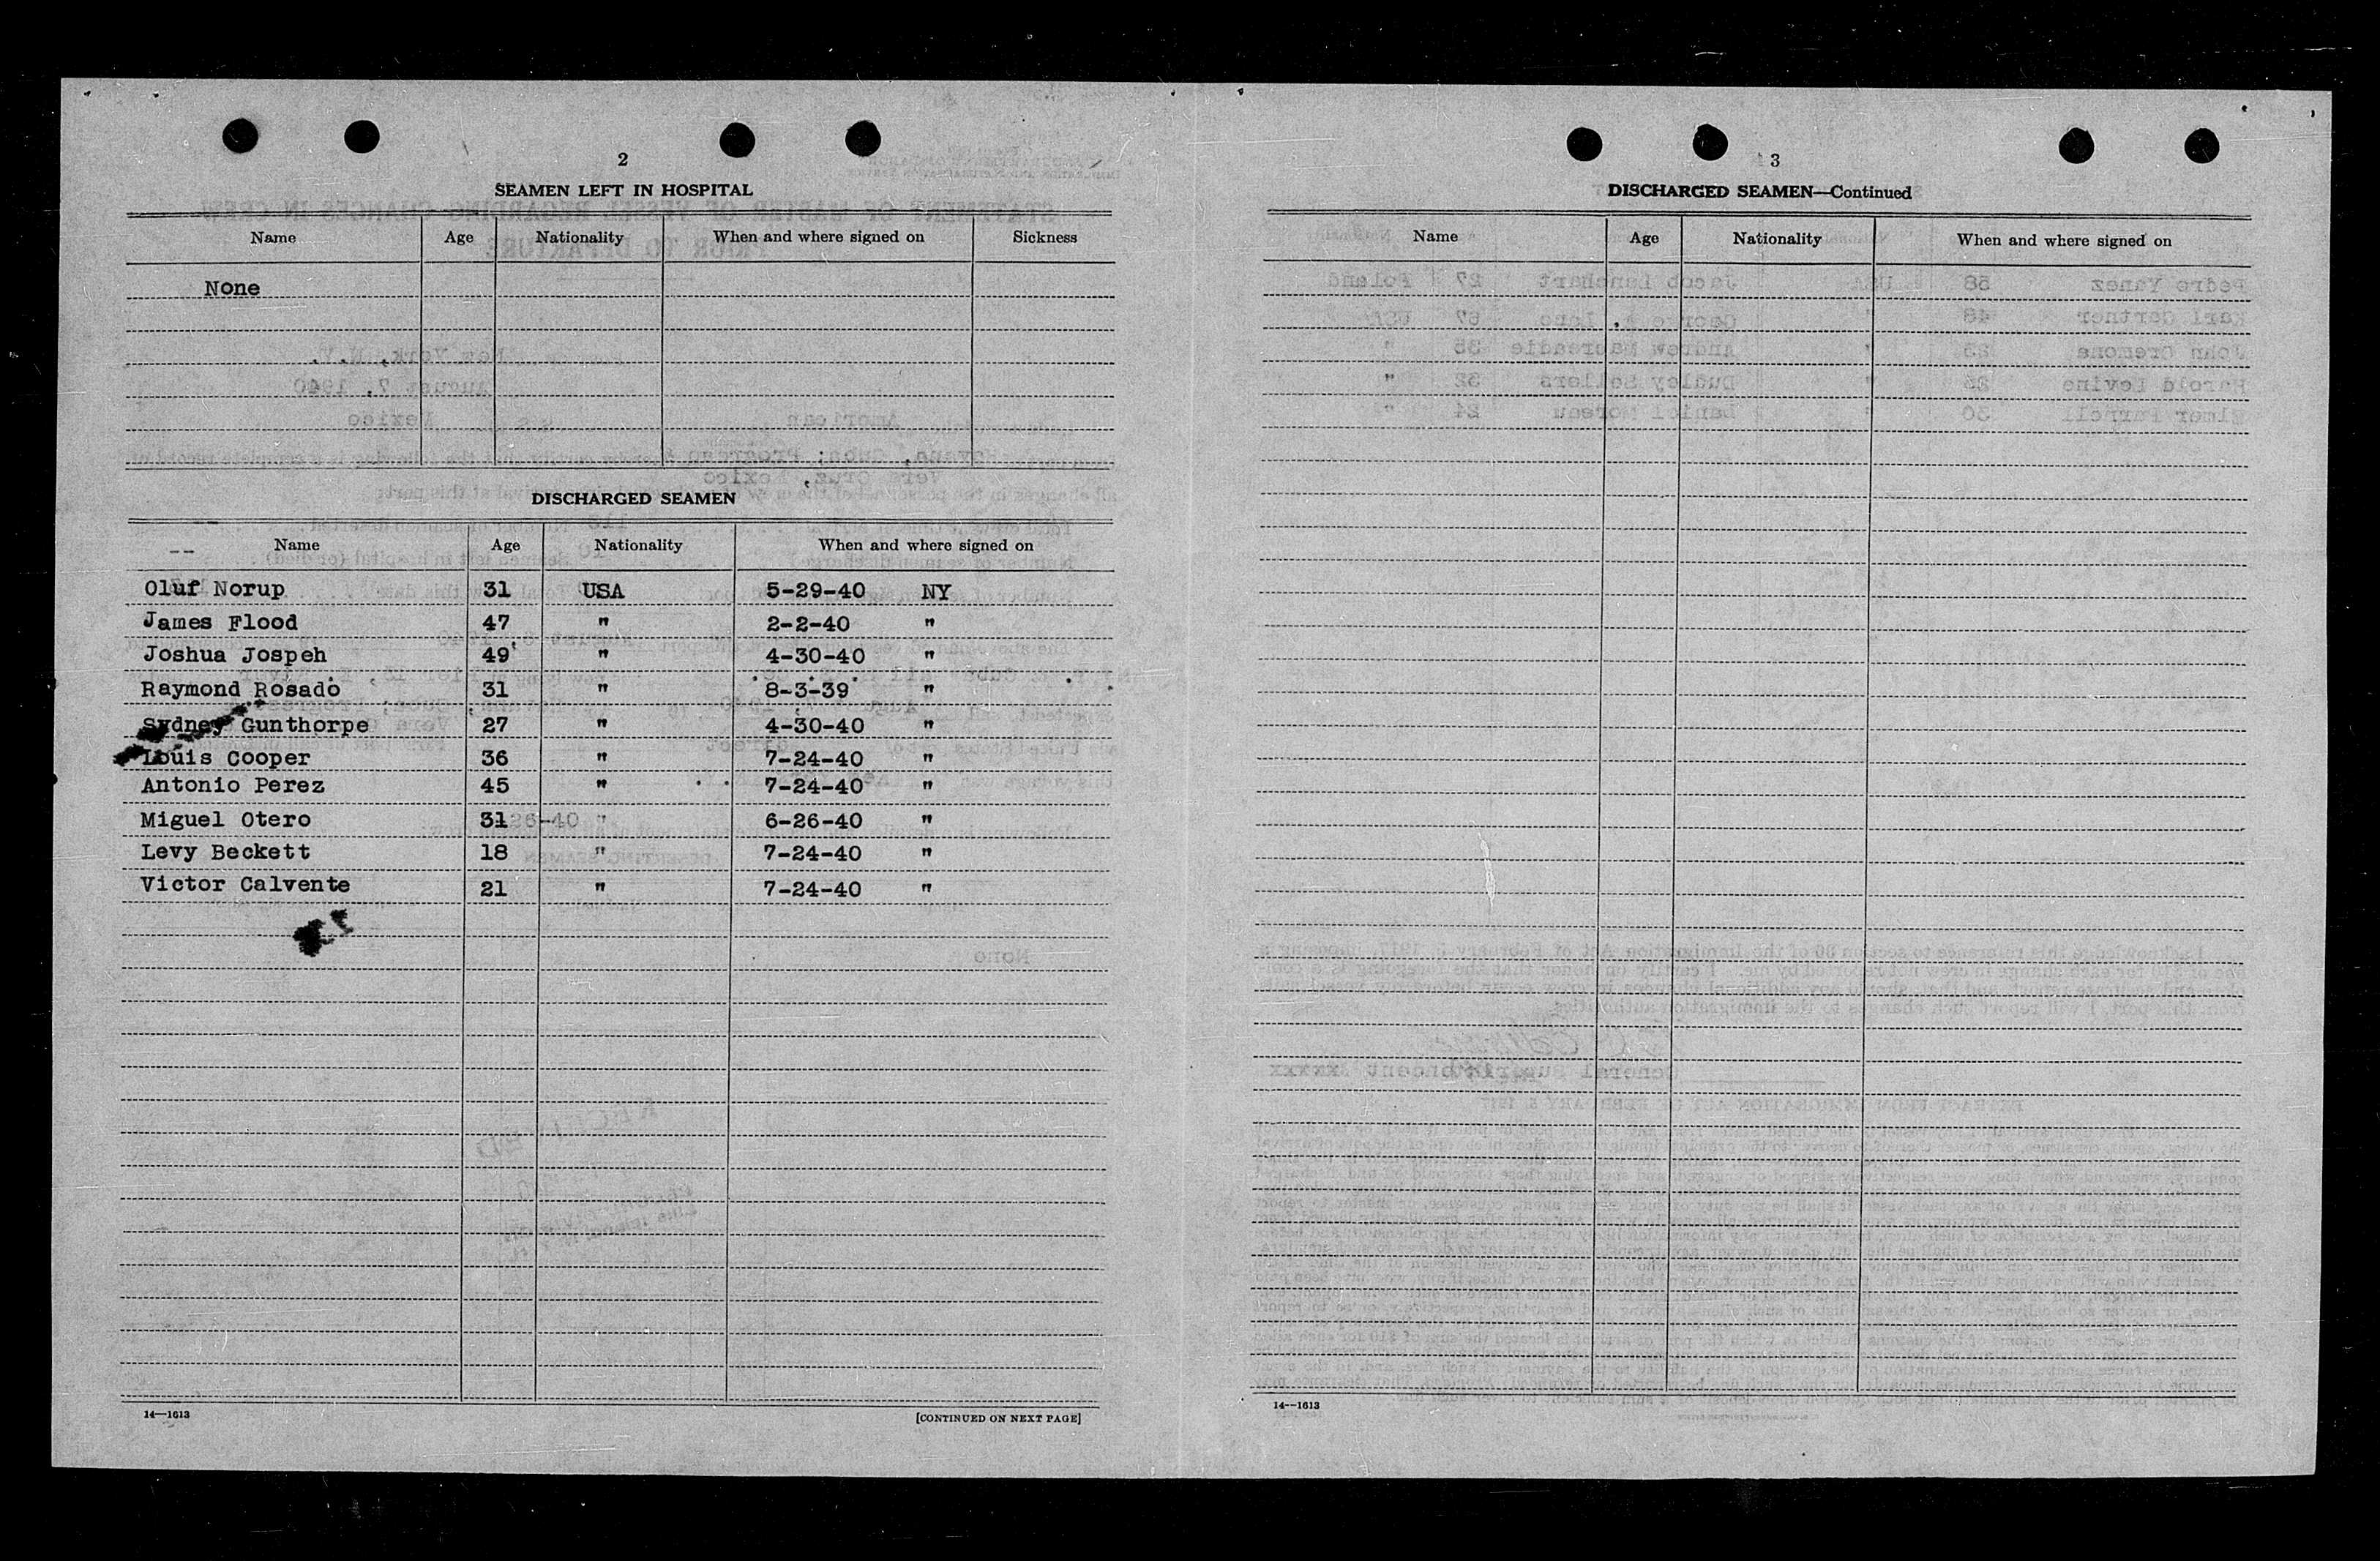 2
SEAMEN LEFT IN HOSPITAL
Name Age Nationality When and where signed on Sickness
None
DISCHARGED SEAMEN
Name Age Nationality When and where signed on
Oluf Norup 31 USA 5-29-40 NY
James Flood 47 " 2-2-40 "
Joshua Jospeh 49 " 4-30-40 "
Raymond Rosado 31 " 8-3-39 "
Sydney Gunthorpe 27 " 4-30-40 "
Louis Cooper 36 " 7-24-40 "
Antonio Perez 45 " 7-24-40 "
Miguel Otero 31 " 6-26-40 "
Levy Beckett 18 " 7-24-40 "
Victor Calvente 21 " 7-24-40 "
14—1613 [CONTINUED ON NEXT PAGE]
3
DISCHARGED SEAMEN—Continued
Name Age Nationality When and where signed on
14—1613